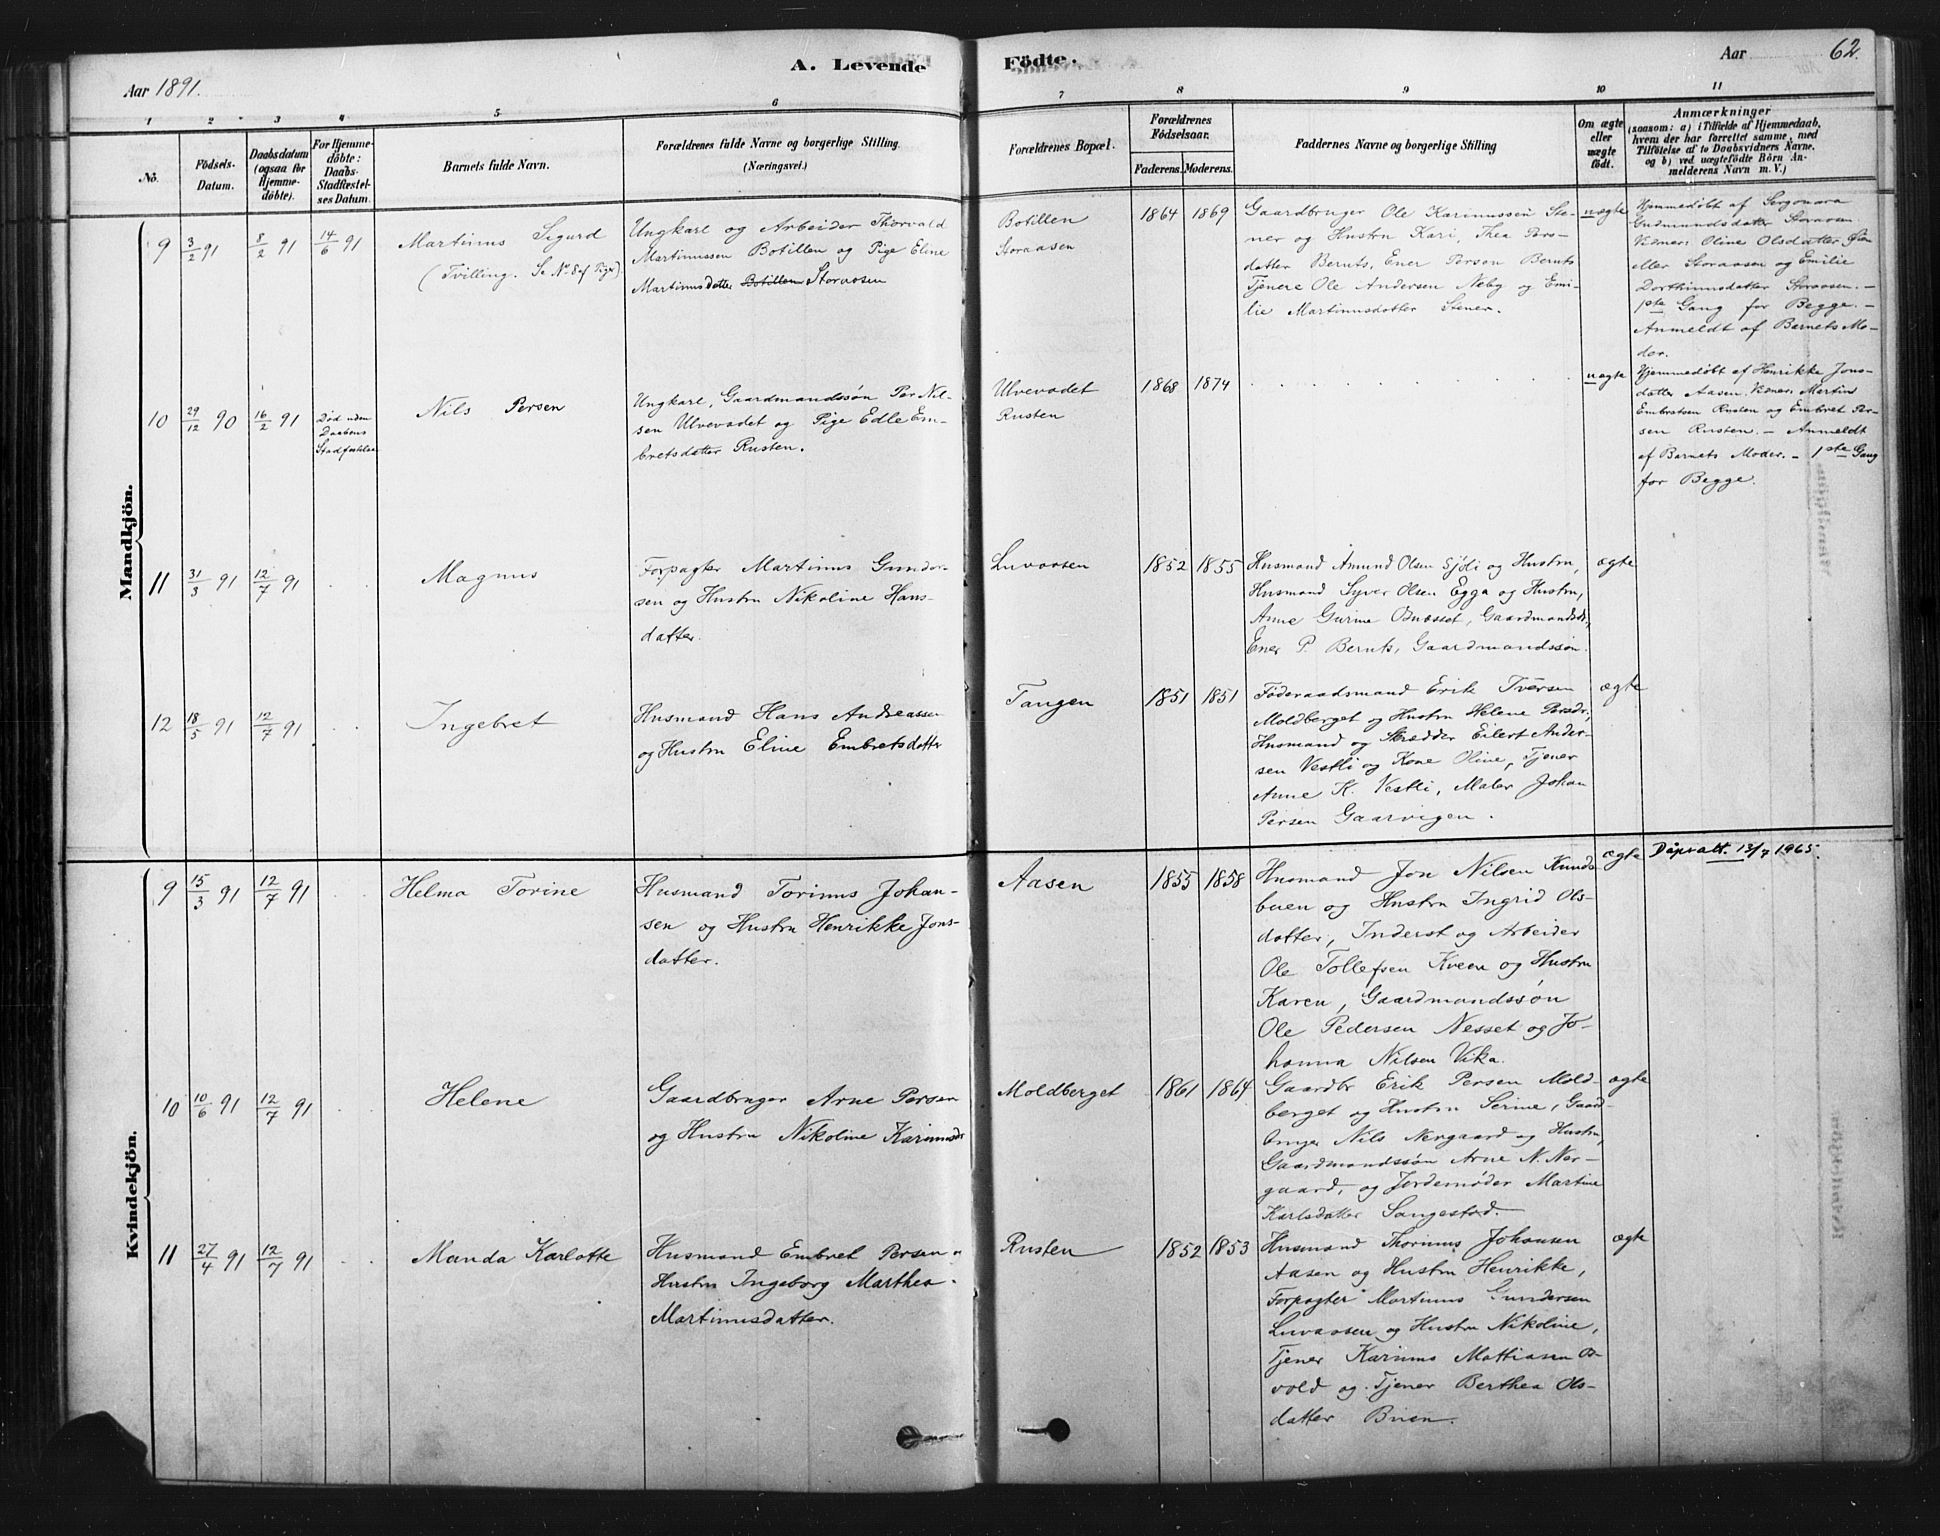 Aar 1891.
A. Levende
Födte.
Aar
62.
1 2 3 4 5 6 7 8 9 10 11
No.
Födsels-
Datum.
Daabsdatum
(ogsaa for
Hjemme-
døbte).
For Hjemme-
døbte:
Daabs-
Stadfæstel-
ses Datum.
Barnets fulde Navn.
Forældrenes fulde Navne og borgerlige Stilling.
(Næringsvei.)
Forældrenes Bopæl.
Forældrenes
Födselsaar.
Faderens. Moderens.
Faddernes Navne og borgerlige Stilling
Om ægte
eller
uægte
födt.
Anmærkninger
(saasom: a) i Tilfælde af Hjemmedaab,
hvem der har forrettet samme, med
Tilföielse af to Daabsvidners Navne,
og b) ved uægtefödte Börn An-
melderens Navn m. V.)
Mandkjön.
9
3/2 91
8/2 91
14/6 91
Martinus Sigurd
(Tvilling. Se No 8 af Piger)
Ungkarl og Arbeider Thorvald
Martinussen Botillen og Pige Eline
Martinusdatter Botillen Storaasen
Botillen
Storaasen
1864 1869
Gaardbruger Ole Karinussen Ste-
ner og Hustru Kari, Thea Pers-
datter Beruts, Ener Person Beruts
Tjenere Ole Andersen Neby og Emi-
lie Martinusdatter Stener.
uægte
Hjemmedøbt af
Gudmundsdatter Storaasen
Vidner: Oline Olsdatter
eller Storaasen og Emilie
Dorthinusdatter Storaasen. —
1ste Gang for Begge. —
Anmeldt af Barnets Mo-
der.
10
29/12 90
16/2 91
Død uden
Daabens
Stadfæstelse
Nils Persen
Ungkarl, Gaardmandssøn Per Nil-
sen Ulvevadet og Pige Edle Em-
bretsdatter Rusten.
Ulvevadet
Rusten
1868 1874
uægte
Hjemmedøbt af Henrikke Jons-
datter Aasen. Vidner: Martin
Embretsen Rusten og Embret Per-
sen Rusten. — Anmeldt
af Barnets Moder. — 1ste Gang
for Begge.
11
31/3 91
12/7 91
Magnus
Forpagter Martinus Gunder-
sen og Hustru Nikoline Hans-
datter.
Luvaasen
1852 1855
Husmand Amund Olsen Sjöli og Hustru,
Husmand Syver Olsen Egga og Hustru,
Anne Gurine, Gaardmandsdr,
Ener P. Beruts, Gaardmandssøn.
ægte
12
18/5 91
12/7 91
Ingebret
Husmand Hans Andreassen
og Hustru Eline Embretsdatter
Tangen
1851 1851
Føderaadsmand Erik Iversen
Moldberget og Hustru Helene Persdr,
Husmand og Skrædder Eilert Ander-
sen Vestli og Kone Oline, Tjener
Anne K. Vestli, Maler Johan
Persen Gaarvigen.
ægte
Kvindekjön.
9
15/3 91
12/7 91
Helma Torine
Husmand Torinus Johan-
sen og Hustru Henrikke Jons-
datter.
Aasen
1855 1858
Husmand Jon Nilsen Kunds-
buen og Hustru Ingrid Ols-
datter, Inderst og Arbeider
Ole Tollefsen Kveen og Hustru
Karen, Gaardmandssøn
Ole Pedersen Nesset og Jo-
hanna Nilsen Vika.
ægte
Dåpsatt. 13/7 1965.
10
10/6 91
12/7 91
Helene
Gaardbruger Arne Persen
og Hustru Nikoline Karinusdr
Moldberget
1861 1864
Gaardbr Erik Persen Mold-
berget og Hustru Serine, Gaard-
bruger Nils Nergaard og Hustru,
Gaardmandssøn Arne N. Ner-
gaard, og Jordemøder Martine
Karlsdatter Sangestad.
ægte
11
27/4 91
12/7 91
Manda Karlotte
Husmand Embret Persen og
Hustru Ingeborg Marthea
Martinusdatter.
Rusten
1852 1853
Husmand Thorinus Johansen
Aasen og Hustru Henrikke,
Forpagter Martinus Gundersen
Luvaasen og Hustru Nikoline,
Tjener Karinus Mathiasen Os-
vold og Tjener Berthea Ols-
datter Buen.
ægte